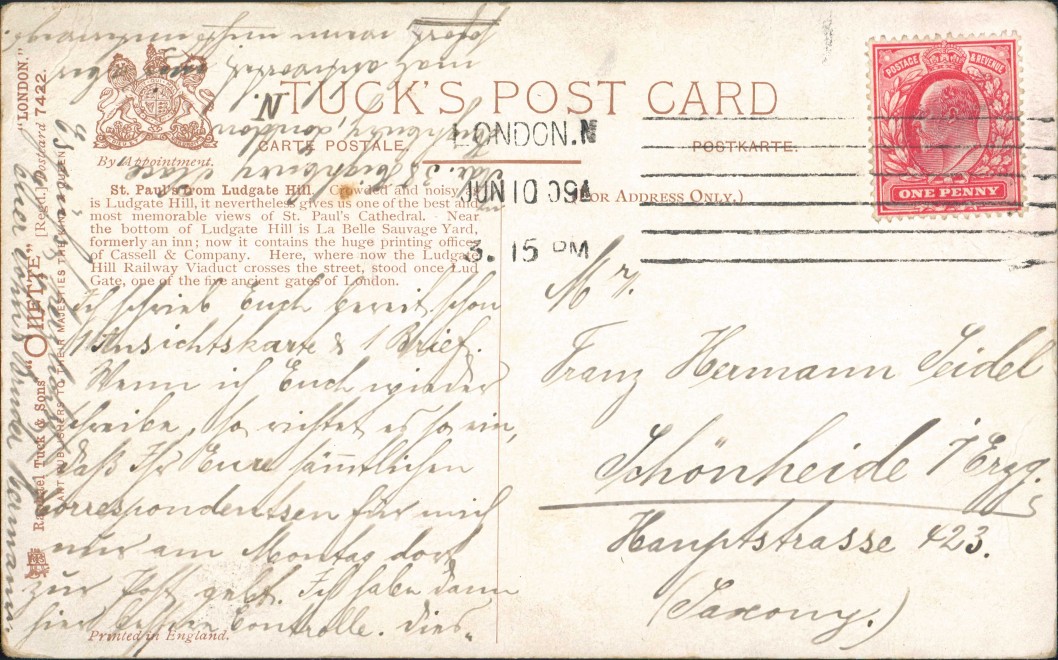 TUCK'S POST CARD
CARTE POSTALE.
POSTKARTE.
By Appointment.
(FOR ADDRESS ONLY.)
POSTAGE & REVENUE
ONE PENNY
LONDON.N
JUN 10 09
3. 15 PM
St. Paul's from Ludgate Hill. Crowded and noisy as
is Ludgate Hill, it nevertheless gives us one of the best and
most memorable views of St. Paul's Cathedral. Near
the bottom of Ludgate Hill is La Belle Sauvage Yard,
formerly an inn; now it contains the huge printing offices
of Cassell & Company. Here, where now the Ludgate
Hill Railway Viaduct crosses the street, stood once Lud
Gate, one of the five ancient gates of London.
Ich schrieb Euch bereits schon
1 Ansichtskarte & 1 Brief.
Wenn ich Euch wieder
schreibe, so richtet es so ein,
daß Ihr Eure sämtlichen
Correspondentsen für mich
nur am Montag dort
zur Post gebt. Ich habe dann
hier bessere Controlle. Dies„
Printed in England.
Mr.
Franz Hermann Seidel
Schönheide i/Erzg.
Hauptstrasse 423.
(Saxony.)
Raphael Tuck & Sons' "OILETTE" [Regd.] Postcard 7422.
"LONDON."
ART PUBLISHERS TO THEIR MAJESTIES THE KING & QUEEN.
38 Highbury Place
Highbury, London
N.